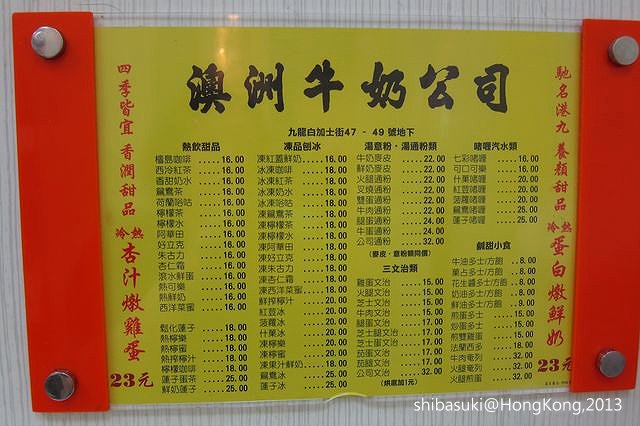 澳洲牛奶公司
九龍白加士街47 - 49 號地下
四季皆宜 香潤甜品
冷熱 杏汁燉雞蛋
23元
熱飲甜品
檀島咖啡 ..... 16.00
西冷紅茶 ..... 16.00
香甜奶水 ..... 16.00
鴛鴦茶 ..... 16.00
荷蘭唂咕 ..... 16.00
檸檬茶 ..... 16.00
檸檬水 ..... 16.00
阿華田 ..... 16.00
好立克 ..... 16.00
朱古力 ..... 16.00
杏仁霜 ..... 16.00
滾水鮮蛋 ..... 16.00
熱可樂 ..... 16.00
熱鮮奶 ..... 16.00
西洋菜蜜 ..... 16.00
鬆化蓮子 ..... 18.00
熱檸樂 ..... 18.00
熱檸蜜 ..... 18.00
熱鮮檸汁 ..... 18.00
熱檸啡 ..... 18.00
蓮子蛋茶 ..... 25.00
鮮奶蓮子 ..... 25.00
凍品刨冰
凍紅蓋鮮奶 ..... 16.00
冰凍咖啡 ..... 18.00
冰凍紅茶 ..... 18.00
冰凍奶水 ..... 18.00
冰凍唂咕 ..... 18.00
凍鴛鴦茶 ..... 18.00
凍檸檬茶 ..... 18.00
凍檸檬水 ..... 18.00
凍阿華田 ..... 18.00
凍好立克 ..... 18.00
凍朱古力 ..... 18.00
凍杏仁霜 ..... 18.00
凍西洋菜蜜 ..... 18.00
鮮搾檸汁 ..... 20.00
紅荳冰 ..... 20.00
菠蘿冰 ..... 20.00
什菓冰 ..... 20.00
凍檸樂 ..... 20.00
凍檸蜜 ..... 20.00
凍果汁鮮奶 ..... 18.00
鴛鴦冰 ..... 25.00
蓮子冰 ..... 25.00
湯意粉・湯通粉類
牛奶麥皮 ..... 22.00
鮮奶麥皮 ..... 22.00
火腿通粉 ..... 22.00
叉燒通粉 ..... 22.00
雙蛋通粉 ..... 22.00
牛肉通粉 ..... 22.00
腿蛋通粉 ..... 24.00
牛蛋通粉 ..... 24.00
公司通粉 ..... 32.00
(麥皮・意粉類同價)
三文治類
雞蛋文治 ..... 15.00
火腿文治 ..... 15.00
芝士文治 ..... 15.00
牛肉文治 ..... 15.00
腿蛋文治 ..... 17.00
芝士腿文治 ..... 17.00
芝士蛋文治 ..... 17.00
茄蛋文治 ..... 17.00
茄腿文治 ..... 17.00
公司文治 ..... 32.00
(烘底加1元)
啫喱汽水類
七彩啫喱 ..... 16.00
可口可樂 ..... 16.00
什菓啫喱 ..... 20.00
紅荳啫喱 ..... 20.00
菠蘿啫喱 ..... 20.00
鴛鴦啫喱 ..... 25.00
蓮子啫喱 ..... 25.00
鹹甜小食
牛油多士/方飽 .. 8.00
菓占多士/方飽 .. 8.00
花生醬多士/方飽 .. 8.00
奶油多士/方飽 .. 8.00
鮮油多士/方飽 .. 9.00
煎蛋多士 ..... 15.00
炒蛋多士 ..... 15.00
煎雙雞蛋 ..... 15.00
法蘭西多 ..... 18.00
牛肉奄列 ..... 32.00
火腿奄列 ..... 32.00
火腿煎蛋 ..... 32.00
馳名港九 養顏甜品
冷熱 蛋白燉鮮奶
23元
shibasuki@HongKong,2013